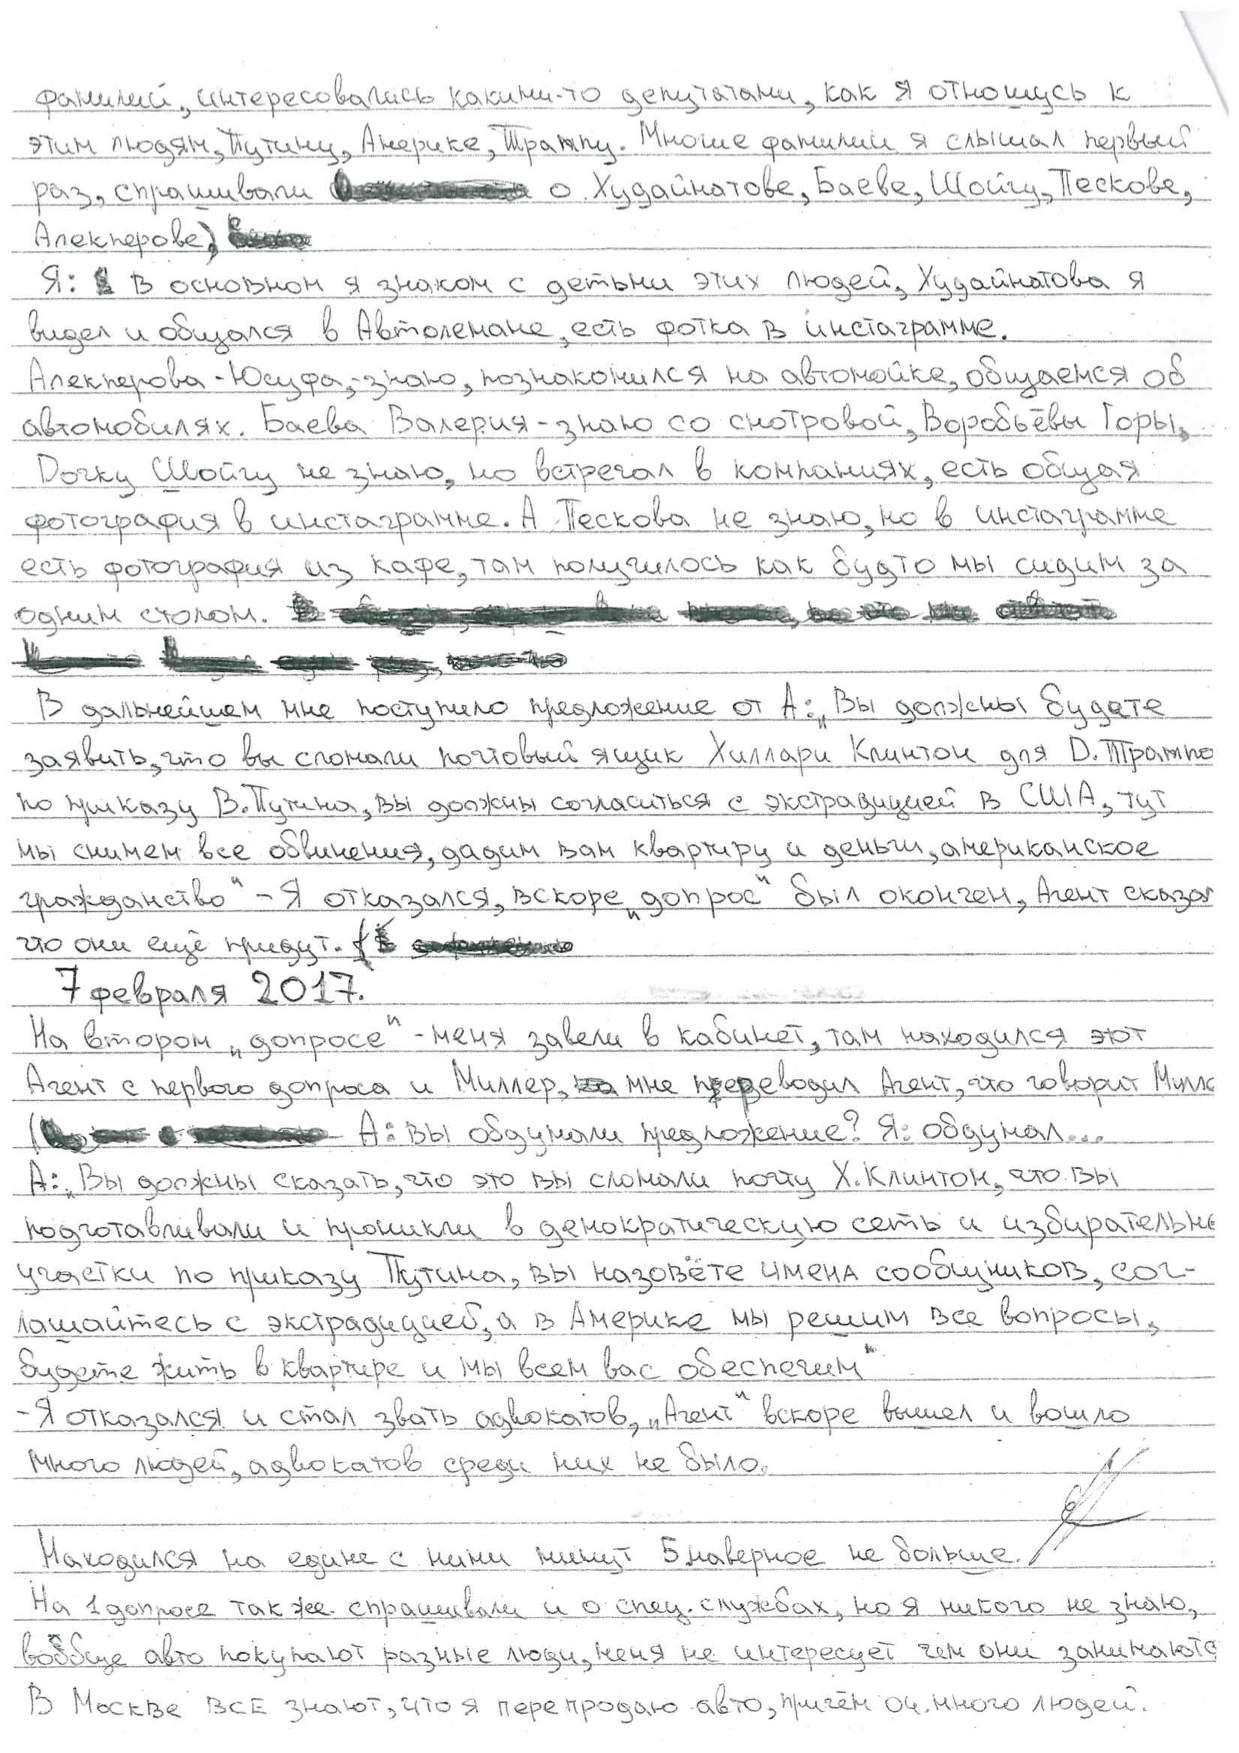 фамилий, интересовались какими-то депутатами, как я отношусь к
этим людям, Путину, Америке, Трампу. Многие фамилии я слышал первый
раз, спрашивали о Худайнатове, Баеве, Шойгу, Пескове,
Алекперове)
Я: В основном я знаком с детьми этих людей, Худайнатова я
видел и общался в Автолемане, есть фотка в инстаграмме.
Алекперова - Юсуфа, - знаю, познакомился на автомойке, общаемся об
автомобилях. Баева Валерия - знаю со смотровой, Воробьёвы Горы,
Дочку Шойгу не знаю, но встречал в компаниях, есть общая
фотография в инстаграмме. А Пескова не знаю, но в инстаграмме
есть фотография из кафе, там получилось как будто мы сидим за
одним столом.
В дальнейшем мне поступило предложение от А: „Вы должны будете
заявить, что вы сломали почтовый ящик Хиллари Клинтон для D. Трампа
по приказу В. Путина, вы должны согласиться с экстрадицией в США, тут
мы снимем все обвинения, дадим вам квартиру и деньги, американское
гражданство" - Я отказался, вскоре „допрос" был окончен, Агент сказал
что они ещё придут.
7 февраля 2017.
На втором „допросе" - меня завели в кабинет, там находился этот
Агент с первого допроса и Миллер, мне переводил Агент, что говорит Милле
( А: вы обдумали предложение? Я: обдумал...
А: „Вы должны сказать, что это вы сломали почту Х. Клинтон, что вы
подготавливали и проникли в демократическую сеть и избирательные
участки по приказу Путина, вы назовёте имена сообщников, сог-
лашайтесь с экстрадицией, а в Америке мы решим все вопросы,
будете жить в квартире и мы всем вас обеспечим"
- Я отказался и стал звать адвокатов, „Агент" вскоре вышел и вошло
много людей, адвокатов среди них не было.
Находился на едине с ними минут 5 наверное не больше.
На 1 допросе так же спрашивали и о спец. службах, но я никого не знаю,
вообще авто покупают разные люди, меня не интересует чем они занимаются
В Москве все знают, что я перепродаю авто, причём оч. много людей.